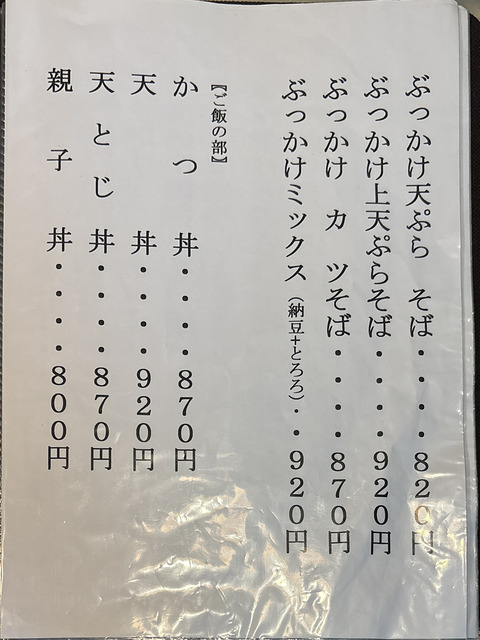 ぶっかけ天ぷら　そば・・・・８２０円
ぶっかけ上天ぷらそば・・・・９２０円
ぶっかけ　カ　ツそば・・・・・８７０円
ぶっかけミックス（納豆+とろろ）・・９２０円
【ご飯の部】
か　つ　丼・・・・８７０円
天　　　丼・・・・９２０円
天とじ　丼・・・・８７０円
親　子　丼・・・・８００円